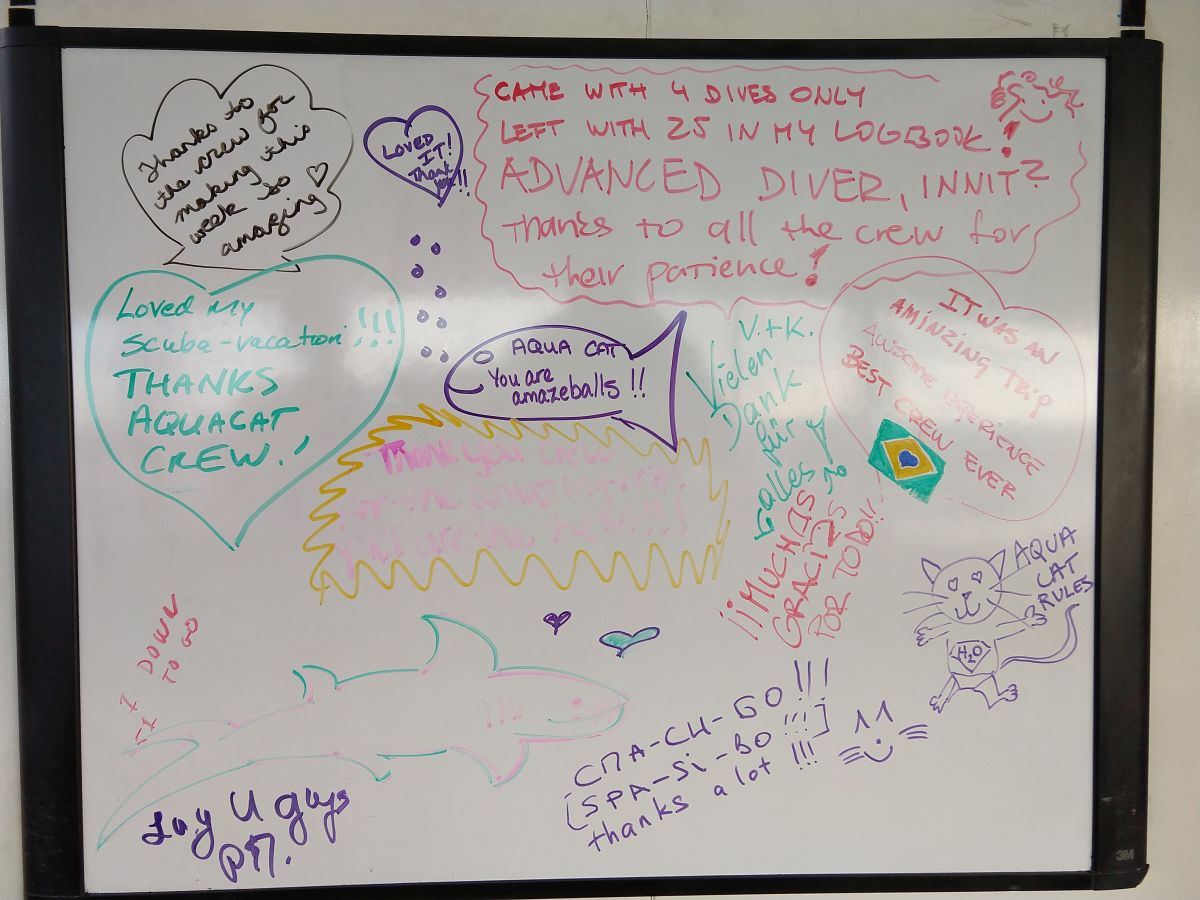 Thanks to
the crew for
making this
week so
amazing
LOVED
IT!
Thank
you!!
CAME WITH 4 DIVES ONLY
LEFT WITH 25 IN MY LOGBOOK!
ADVANCED DIVER, INNIT?
Thanks to all the crew for
their patience!
Loved My
scuba-vacation!!!
THANKS
AQUACAT
CREW!
AQUA CAT
You are
amazeballs!!
V.+K.
Vielen
Dank
für
alles
IT WAS AN
AMINZING TRIP
AWSOME EXPERIENCE
BEST CREW EVER
Thank you crew
You are the best!!!
¡¡MUCHAS
GRACIAS
POR TODO!!
AQUA
CAT
RULES
H2O
1 DOWN
TO GO
СПА-СИ-БО!!!
[SPA-Si-BO!!!]
thanks a lot!!!
Luv U guys
3M